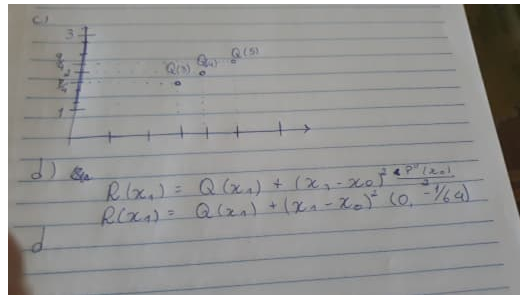 c)
3
Q(3) Q(4) Q(5)
2
1
d)
R(x₁) = Q(x₁) + (x₁ - x₀)² P''(x₀)
R(x₁) = Q(x₁) + (x₁ - x₀)² (0, -1/64)
d